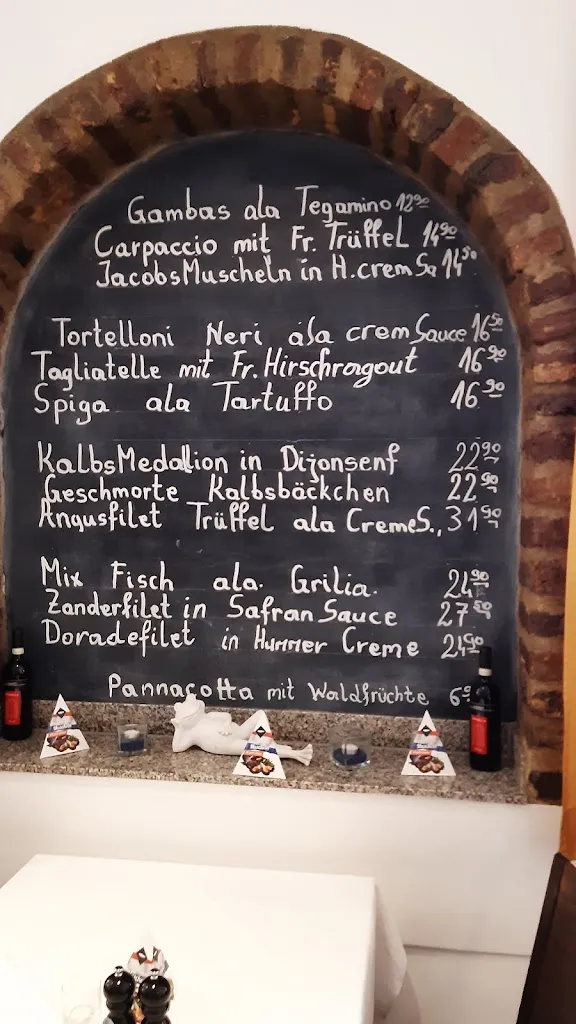 Gambas ala Tegamino 12⁹⁰
Carpaccio mit Fr. Trüffel 14⁹⁰
JacobsMuscheln in H.crem Sa 14⁵⁰
Tortelloni Neri ala crem Sauce 16⁵⁰
Tagliatelle mit Fr. Hirschragout 16⁹⁰
Spiga ala Tartuffo 16⁹⁰
KalbsMedallion in Dijonsenf 22⁹⁰
Geschmorte Kalbsbäckchen 22⁹⁰
Angusfilet Trüffel ala CremeS., 31⁹⁰
Mix Fisch ala. Grilia. 24⁹⁰
Zanderfilet in Safran Sauce 27⁵⁰
Doradefilet in Hummer Creme 24⁹⁰
Pannacotta mit Waldfrüchte